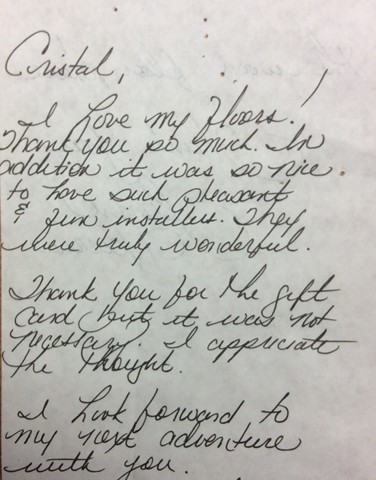 Cristal,
I Love my Floors!
Thank you so much. In
addition it was so nice
to have such pleasant
& fun installers. They
were truly wonderful.
Thank you for the gift
card but it was not
necessary. I appreciate
the thought.
I Look forward to
my next adventure
with you.